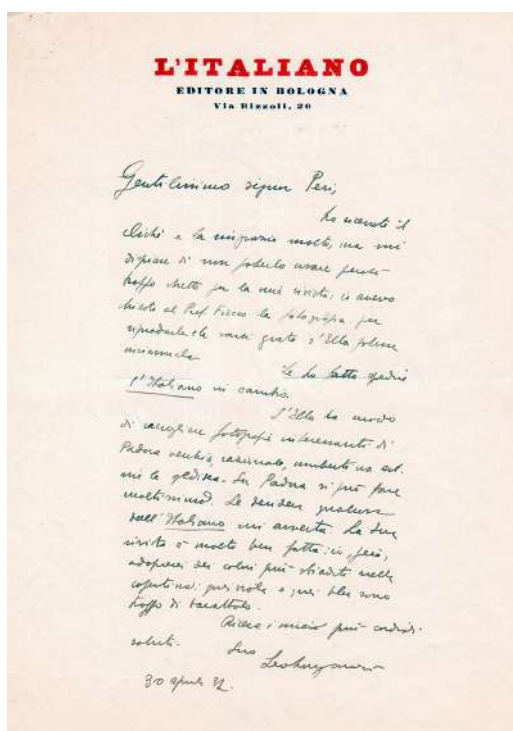 L'ITALIANO
EDITORE IN BOLOGNA
Via Rizzoli, 20
Gentilissimo signor Peri,
ho ricevuto il
cliché e la ringrazio molto, ma mi
dispiace di non poterlo usare perché
troppo stretto per la mia rivista; io avevo
chiesto al Prof. Fiocco la fotografia per
riprodurla e le sarei grato s'Ella potesse
inviarmela.
Le ho fatto spedire
l'Italiano in cambio.
S'Ella ha modo
di raccogliere fotografie interessanti di
Padova vecchia, romantica, umbertina ecc.
me le spedisca. Su Padova si può fare
moltissimo. Se desidera qualcosa
dall'Italiano mi avverta. La sua
rivista è molto ben fatta: io, però,
adoprerei dei colori più sbiaditi nelle
copertine: quei viola e quei bleu sono
troppo di barattolo.
Riceva i miei più cordiali
saluti.
Suo
Leo Longanesi
30 aprile 32.